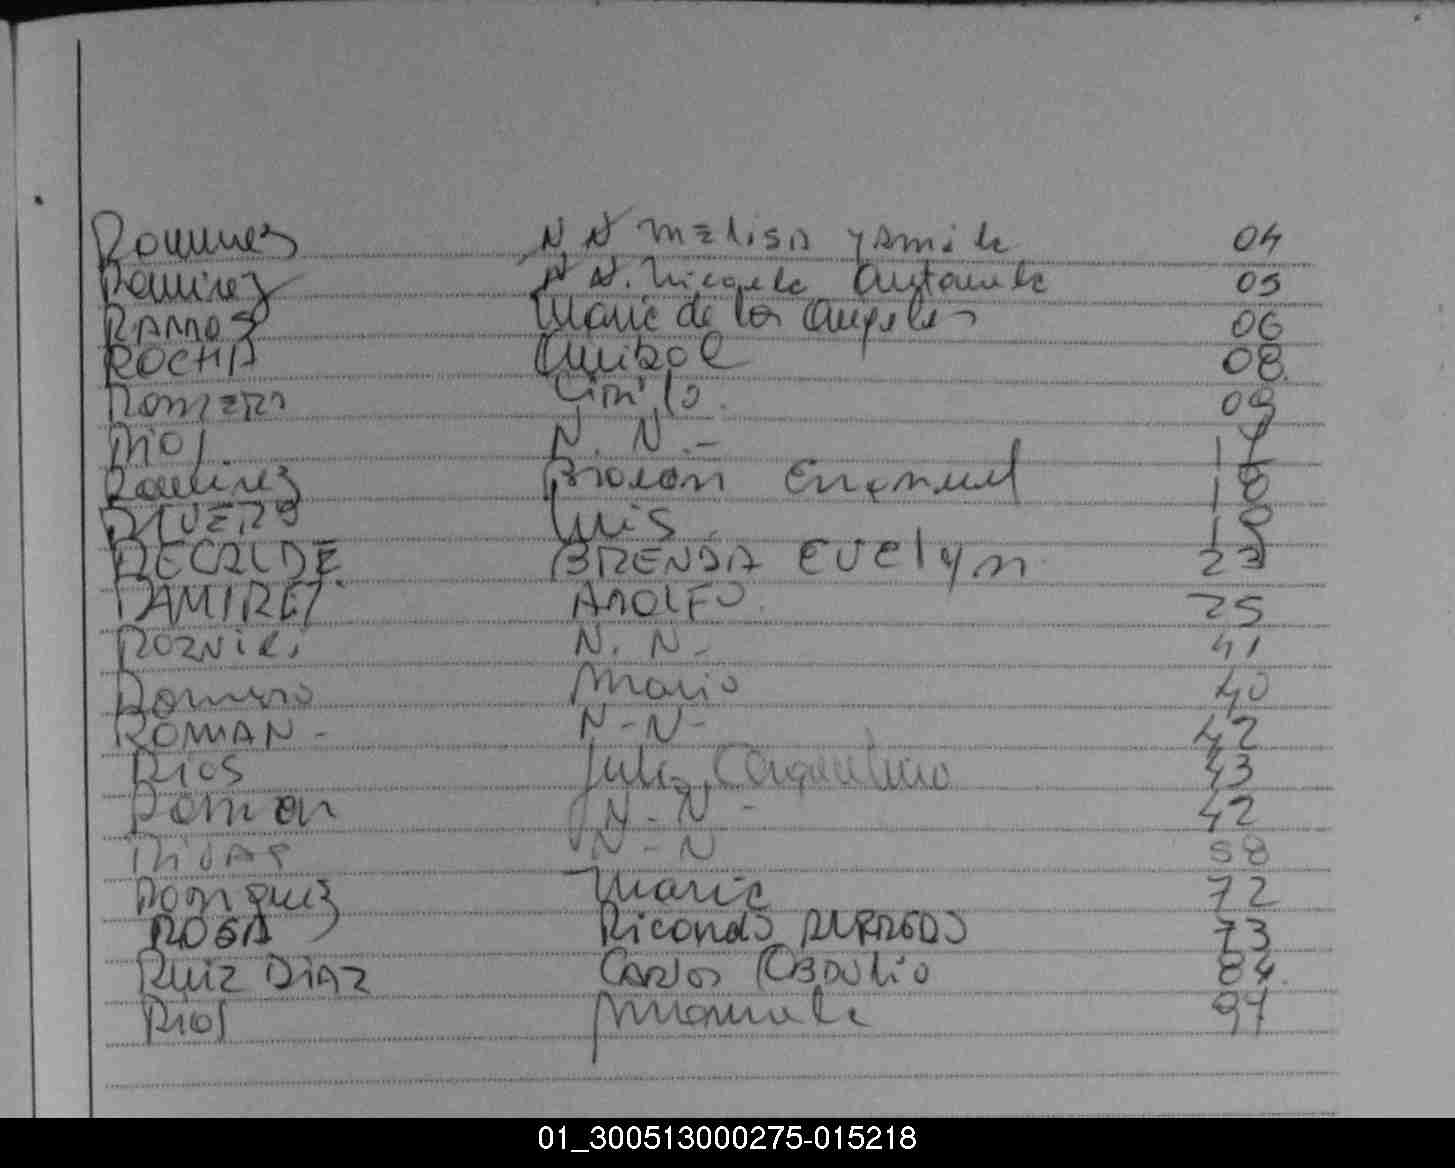 Ramirez N N Melisa Yamile 04
Ramirez N N. Micaela Antonela 05
RAMOS Maria de los Angeles 06
ROCHA Anibal 08
Romero Cirilo 09
Rios N. N. - 17
Ramirez Braian Emanuel 18
RIVERO Luis. 19
RECALDE BRENDA Evelyn 23
RAMIREZ ADOLFO. 25
N. N - 41
Romero Mario 40
ROMAN - N - N - 42
Rios Julio 43
Roman N - N - 42
RIVAS N - N 58
Rodriguez Maria 72
ROSA Ricardo ALFREDO 73
Ruiz DIAZ Carlos OBDULIO 84.
Rios Manuela 97
01_300513000275-015218